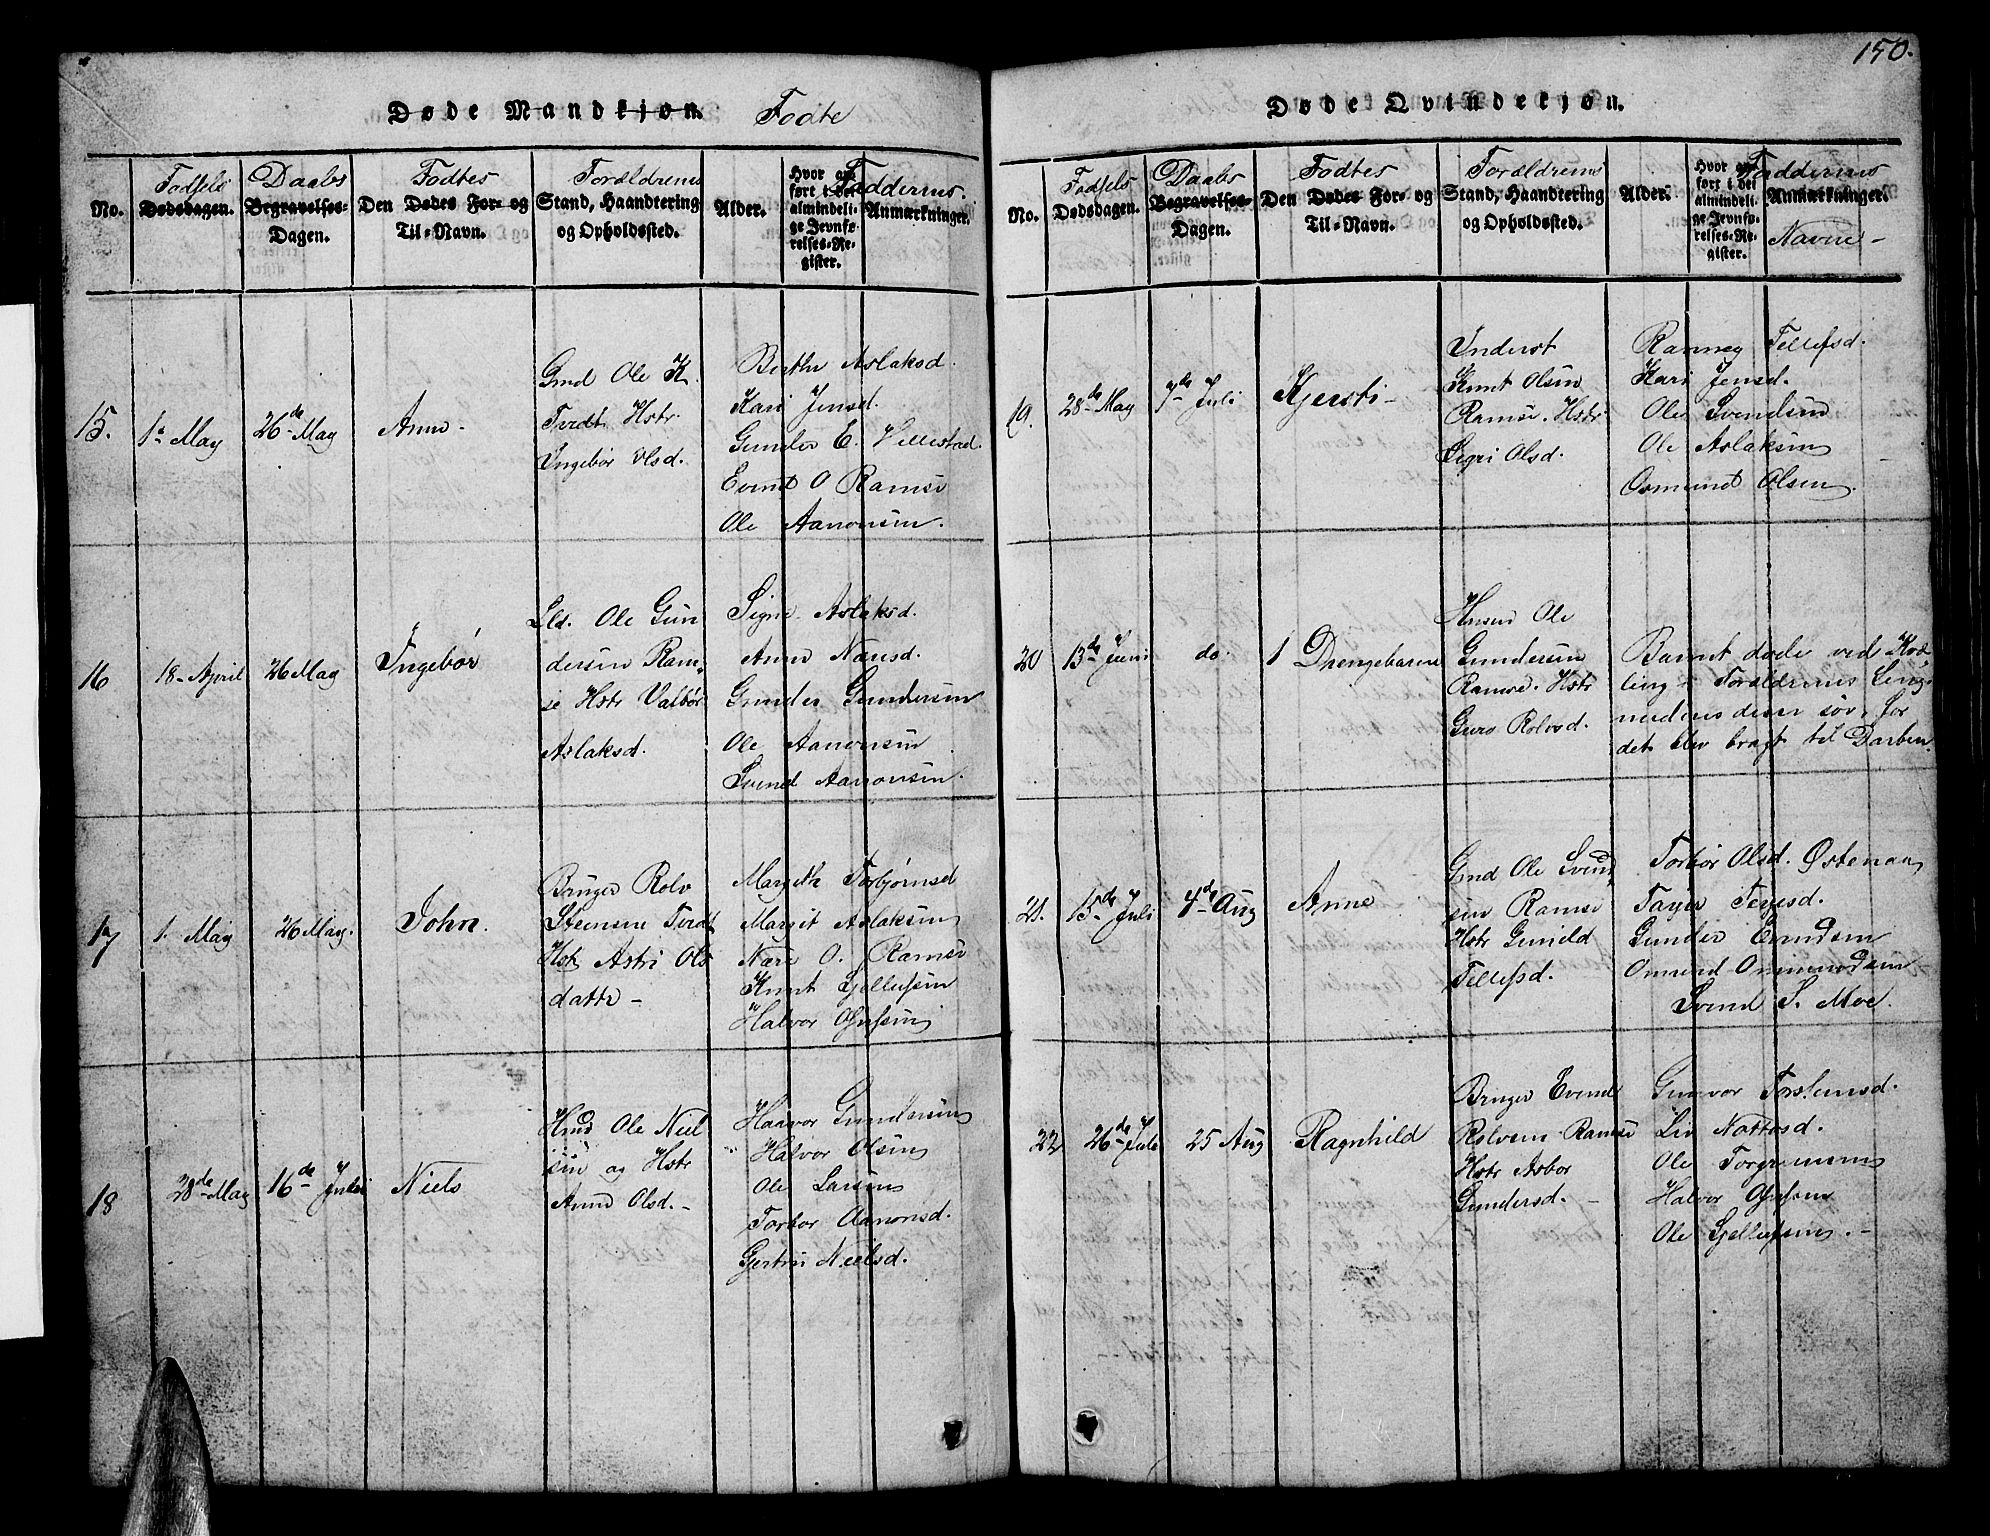 150.
Døde Mandkjøn. Fødte
No.
Fødsels
Dødsdagen.
Daabs
Begravelses-
Dagen.
Fødtes
Den Dødes For- og
Til-Navn.
Forældrenes
Stand, Haandtering
og Opholdssted.
Alder.
Hvor an-
ført i det
almindeli-
ge Jevnfø-
relses-Re-
gister.
Faddernes
Anmærkninger.
15.
1e May
26de May
Anne-
Gmd Ole K
Tvedt Hstr.
Ingebør Olsd.
Berthe Aslaksd.
Kari Jensd.
Gunder E. Villestad.
Evend O Ramse
Ole Aanonsen.
16
18 April
26 May
Ingebør
Lld. Ole Gun
dersen Ram-
se Hstr Valbør
Aslaksd.
Signe Aslaksd.
Anne Næsd.
Gunder Gundersen
Ole Aanonsen
Svend Aanonsen.
17
1. May
26 May.
John.
Bruger Rolv
Steensen Tvedt
Hst Astri Ols
datte -
Margith Torbjørnsd
Margit Aslaksen
Nære O. Ramse
Knut Gjellufsen
Halvor
18
28de May
16de Juli
Niels
Hmd Ole Niel
sen og Hstr
Anne Olsd. -
Haavor Gundersen
Halvor Olsen
Ole Larsen
Torbor Aanonsd.
Gertru Nielsd.
Døde Qvindekjøn.
No.
Fødsels
Dødsdagen.
Daabs
Begravelses-
Dagen.
Fødtes
Den Dødes For- og
Til-Navn.
Forældrenes
Stand, Haandtering
og Opholdssted.
Alder.
Hvor an-
ført i det
almindeli-
ge Jevnfø-
relses-Re-
gister.
Faddernes
Anmærkninger.
Navne -
19.
28de May
7de Juli
Kjersti -
Inderst
Knut Olsen
Ramse. Hstr
Sigri Olsd.
Ranneg Tellefsd.
Kari Jensd.
Ole Svendsen
Ole Aslaksen
Osmund Olsen.
20
13de Juni
do.
1 Drengebarn
Ole
Gundersen
Ramse. Hstr
Guro Rolvsd.
Barnet døde ved
ling i Forældrenes Seng
for
det blev bragt til Daaben.
21.
15de Juli
4de Aug
Anne
Gmd Ole Svend
sen Ramse
Hstr Gunild
Tellefsd.
Torbør Olsd. Østenaa
Tager Tejesd.
Gunder Evndsen
Omund Ommundsen
Svend S. Moe.
22
26de Juli
25 Aug
Ragnhild
Bruger Evend
Rolvsen Ramse
Hstr Asbor
Gundersd. -
Gunvor Torstensd.
Liv Nottosd.
Ole Torgremsen
Halvor
Ole Gjellufsen. -